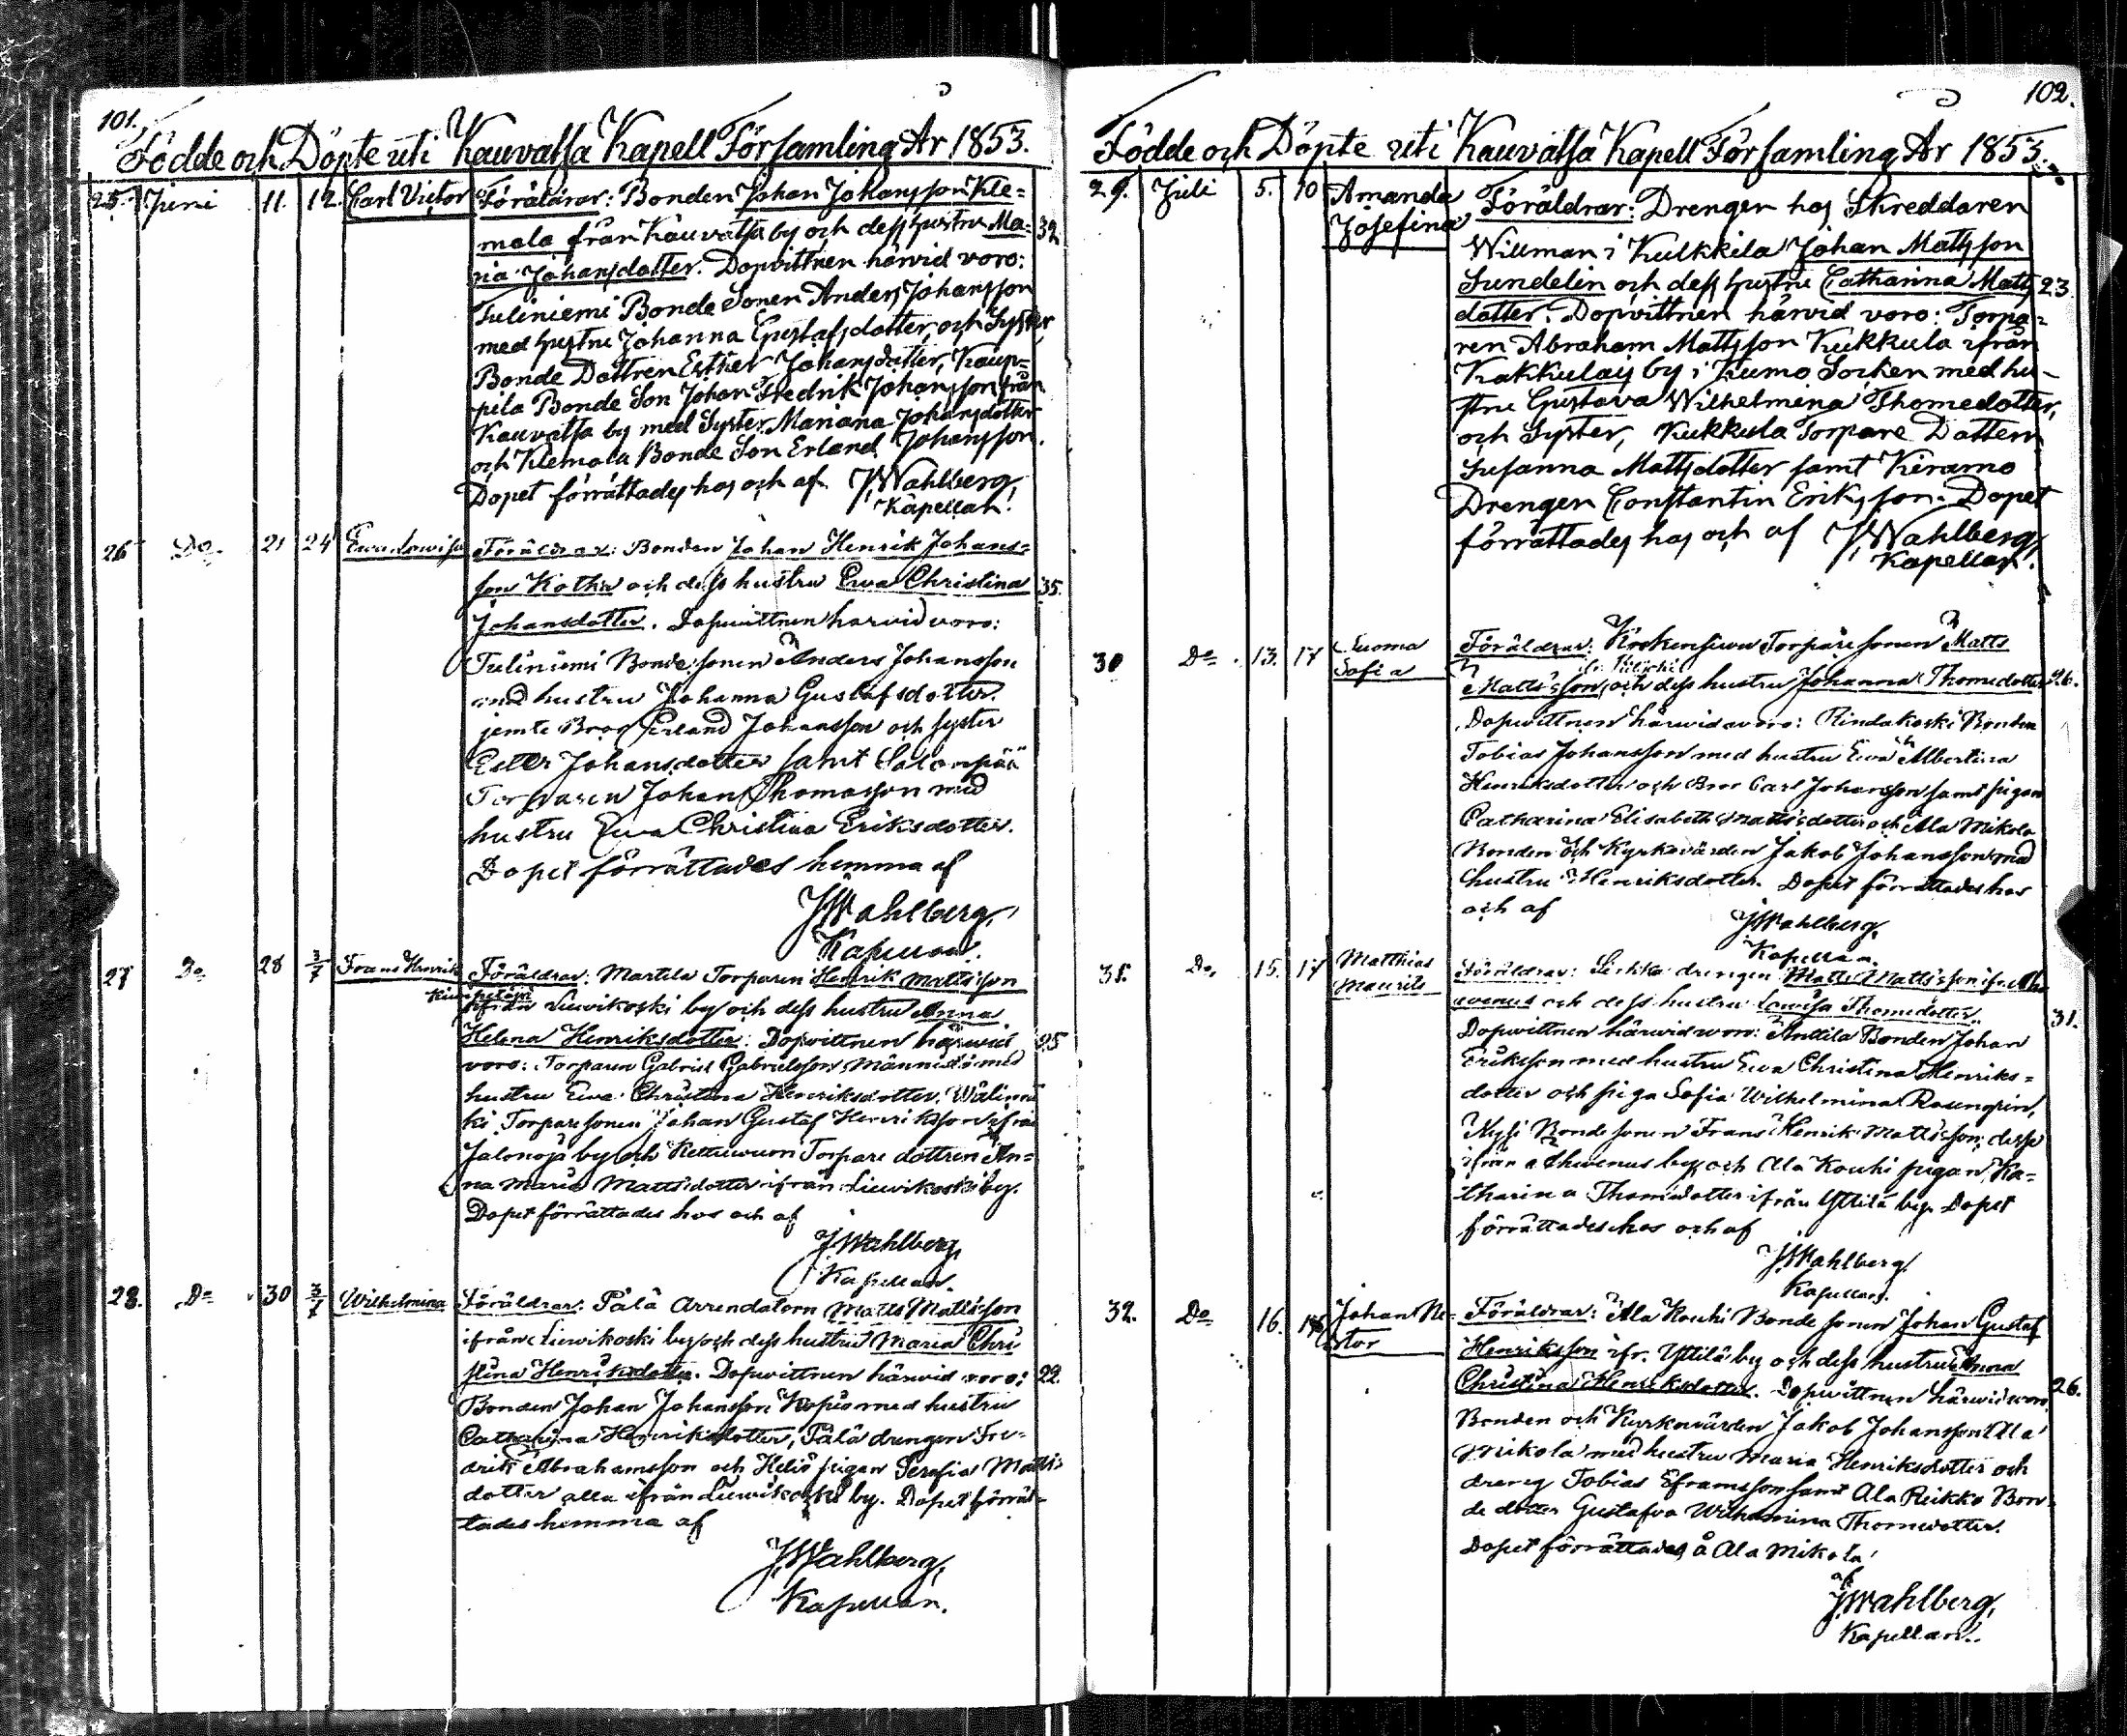 101.
Födde och Döpte uti Kauvatsa Kapell Församling År 1853.
25. Juni 11. 12. Carl Victor Föräldrar: Bonden Johan Johansson Kle=
mola från Kauvatsa by och dess hustru Ma= 32
ria Johansdotter. Dopvittnen härvid voro:
Tuliniemi Bonde Sonen Anders Johansson
med hustru Johanna Gustafsdotter, och Syster,
Bonde Dottren Esther Johansdotter, Kaup=
pila Bonde Son Johan Fredrik Johansson från
Kauvatsa by med Syster Mariana Johansdotter
och Klemola Bonde Son Erland Johansson.
Dopet förrättades hos och af JWahlberg,
Kapellan.
26 Do 21 24 Ewa Lowisa Föräldrar: Bonden Johan Henrik Johans=
son Kotka och dess hustru Ewa Christina 35.
Johansdotter. Dopwittnen härvid voro:
Tuliniemi Bonde sonen Anders Johansson
med hustru Johanna Gustafsdotter
jemte Bror Erland Johansson och syster
Ester Johansdotter samt Salonpää
Torparen Johan Thomasson med
hustru Ewa Christina Eriksdotter.
Dopet förrättades hemma af
JWahlberg,
Kapellan.
27 Do 28 3/7 Frans Henrik Föräldrar: Martila Torparen Henrik Mattsson
ifrån Liewikoski by och dess hustru Anna
Helena Henriksdotter. Dopvittnen härwid 25
voro: Torparen Gabriel Gabrielsson Männistö med
hustru Ewa Christina Henriksdotter,
ki Torpare sonen Johan Gustaf Henriksson ifrån
Jalonoja by och Torpare dottren An=
na Maria Mattsdotter ifrån Liewikoski by.
Dopet förrättades hos och af
JWahlberg,
Kapellan.
28. Do 30 3/7 Wilhelmina Föräldrar: Pälä Arrendatorn Matts Mattsson
ifrån Liewikoski by och dess hustru Maria Chri
stina Henriksdotter. Dopwittnen härvid voro: 22.
Bonden Johan Johansson med hustru
Catharina Henriksdotter, Pälä drengen Fre-
drik Abrahamsson och pigan Serafia Matts
dotter alla ifrån Liewikoski by. Dopet förrät=
tades hemma af
JWahlberg,
Kapellan.
102.
Födde och Döpte uti Kauvatsa Kapell Församling År 1853.
29. Juli 5. 10 Amanda Föräldrar: Drengen hos Skreddaren
Josefina Willman i Kulkkila Johan Mattsson
Sundelin och dess hustru Catharina Matts 23.
dotter. Dopvittnen härvid voro: Torpa=
ren Abraham Mattsson Kukkula ifrån
Kakkulais by i Kumo Socken med hu-
stru Gustava Wilhelmina Thomedotter,
och Syster, Kukkula Torpare Dottern
Susanna Mattsdotter samt Keramo
Drengen Constantin Eriksson. Dopet
förrättades hos och af JWahlberg,
Kapellan.
30 Do 13. 17 Suoma Föräldrar: Torpare sonen Matts
Sofia Mattsson, och dess hustru Johanna Thomedotter 26.
Dopwittnen härwid voro: Rindakoski Bonden
Tobias Johansson med hustru Ewa Albertina
Henriksdotter och Bror Carl Johansson samt pigan
Catharina Elisabeth Mattsdotter och Ala Mikola
Bonden och Kyrkovärden Jakob Johansson med
hustru Henriksdotter. Dopet förrättades hos
och af JWahlberg,
Kapellan.
31. Do 15. 17 Matthias Föräldrar: drengen Matts Mattsson ifr. Ah
Maurits wenus och dess hustru Lowisa Thomedotter. 31.
Dopwittnen härwid voro: Anttila Bonden Johan
Eriksson med hustru Ewa Christina Henriks=
dotter och piga Sofia Wilhelmina Rosengren,
Nysi Bonde sonen Frans Henrik Mattsson, desse
ifrån Ahwenus by, och Ala Kouhi pigan Ka=
tharina Thomedotter ifrån Yttilä by. Dopet
förrättades hos och af
JWahlberg
Kapellan.
32. Do 16. Johan Ne= Föräldrar: Ala Kouhi Bonde sonen Johan Gustaf
stor Henriksson ifr. Yttilä by och dess hustru Anna
Christina Henriksdotter. Dopwittnen härwid voro 26.
Bonden och Kyrkovärden Jakob Johansson Ala
Mikola med hustru Maria Henriksdotter och
dreng Tobias Eframsson samt Ala Reikko Bon=
de dotter Gustafva Wilhelmina Thomedotter.
Dopet förrättades å Ala Mikola
af
JWahlberg,
Kapellan.